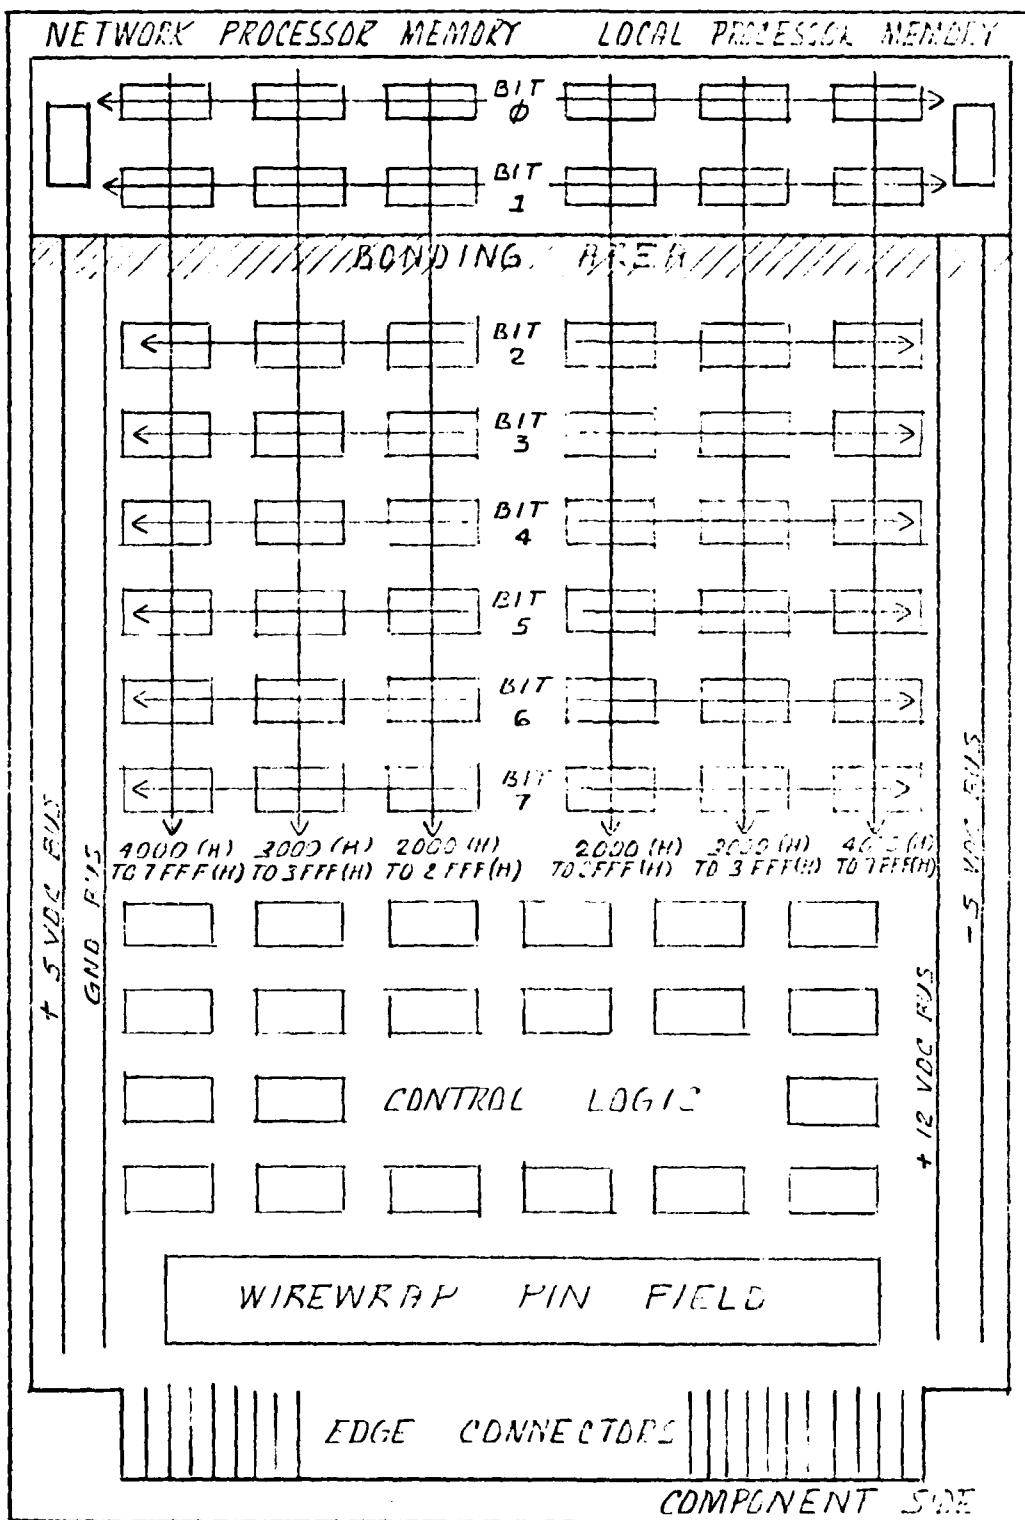 NETWORK PROCESSOR MEMORY LOCAL PROCESSOR MEMORY
BIT
0
BIT
1
BONDING AREA
BIT
2
BIT
3
BIT
4
BIT
5
BIT
6
BIT
7
4000 (H) 3000 (H) 2000 (H) 2000 (H) 3000 (H) 4000 (H)
TO 7FFF(H) TO 3FFF(H) TO 2FFF(H) TO 2FFF(H) TO 3FFF(H) TO 7FFF(H)
+ 5 VDC BUS
GND BUS
+ 12 VDC BUS
- 5 VDC BUS
CONTROL LOGIC
WIREWRAP PIN FIELD
EDGE CONNECTORS
COMPONENT SIDE